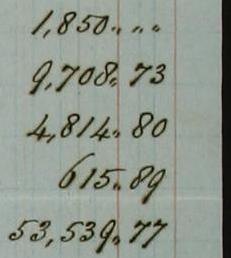 1,850 〃 〃 〃
9,708 〃 73
4,814 〃 80
615 〃 89
53,539 〃 77